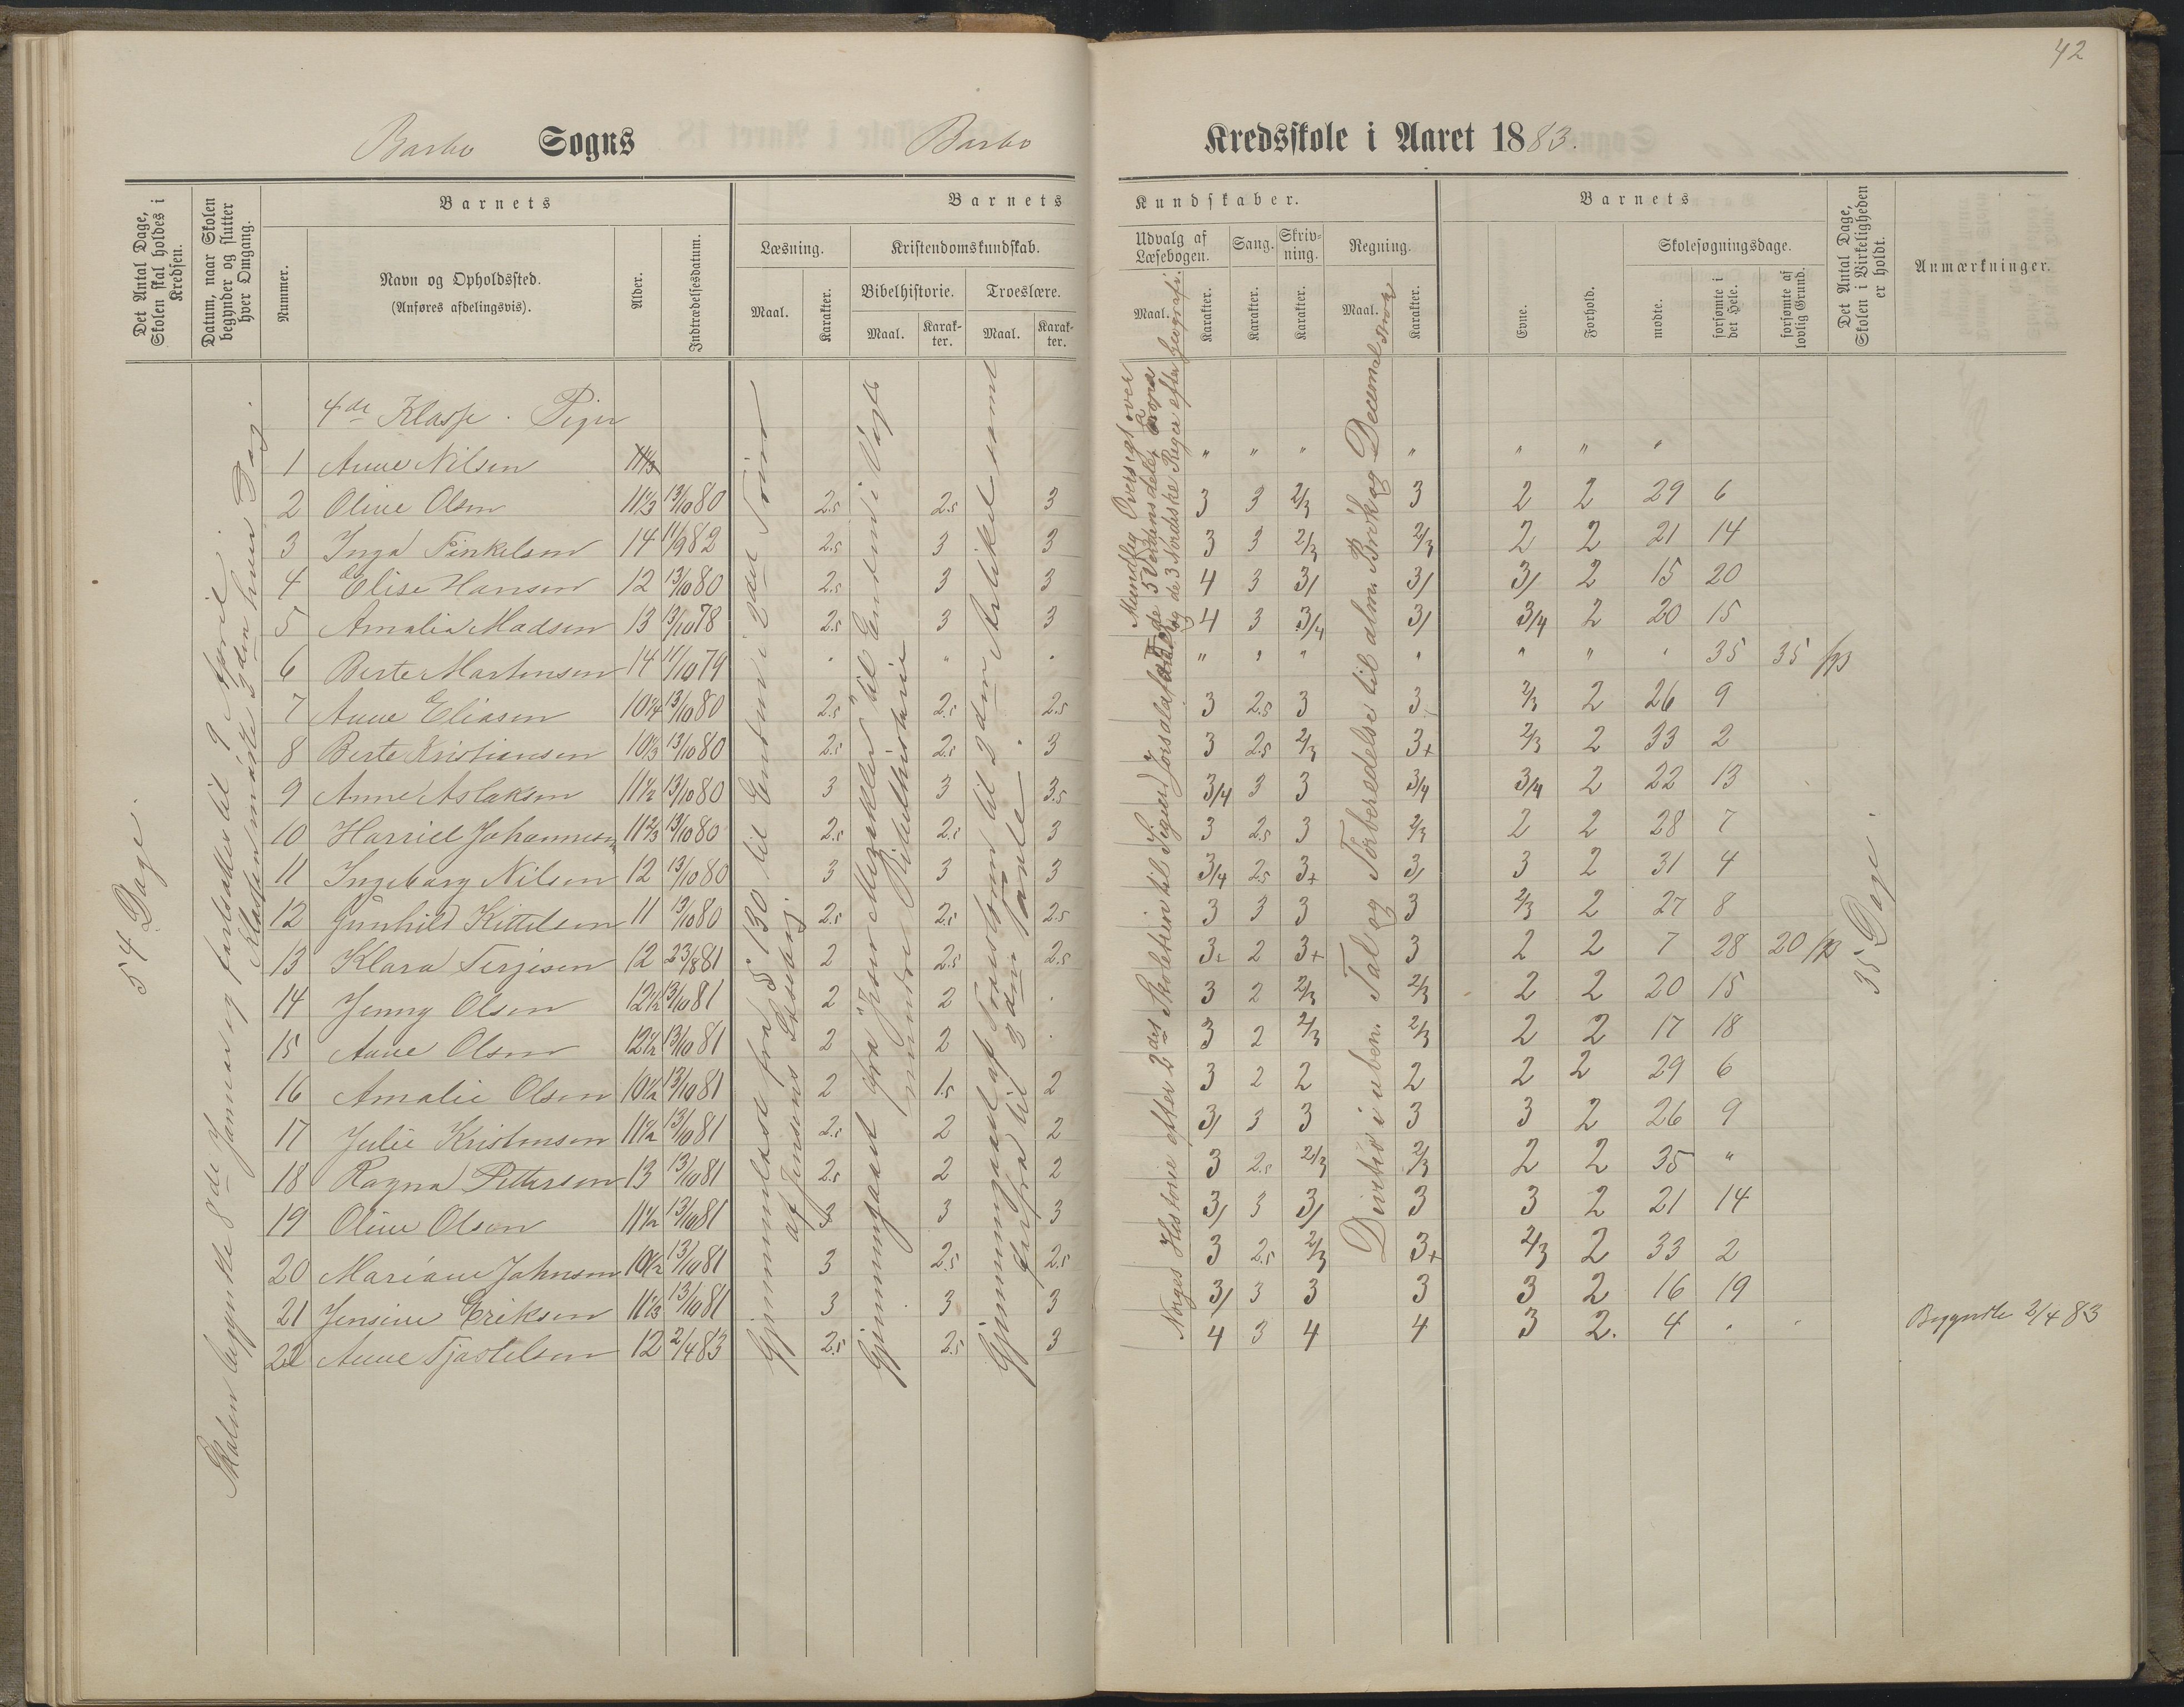 42
Barbo Sogns Barbo Kredsskole i Aaret 1883.
Det Antal Dage, Skolen skal holdes i Kredsen.
Datum, naar Skolen begynder og slutter hver Omgang.
Barnets
Nummer.
Navn og Opholdssted.
(Anføres afdelingsvis).
Alder.
Indtrædelsesdatum.
Barnets Kundskaber.
Læsning.
Maal.
Karakter.
Kristendomskundskab.
Bibelhistorie.
Maal.
Karakter.
Troeslære.
Maal.
Karakter.
Udvalg af Læsebogen.
Maal.
Karakter.
Sang.
Karakter.
Skrivning.
Karakter.
Regning.
Maal.
Karakter.
Barnets
Evne.
Forhold.
Skolesøgningsdage.
mødte.
forsømte i det Hele.
forsømte af lovlig Grund.
Det Antal Dage, Skolen i Virkeligheden er holdt.
Anmærkninger.
54 Dage.
Skolen begyndte 8de Januar og fortsattes til 9 April.
Klassen mødte 3den hver Dag.
Gjennemlæst fra § 130 til Enden i 2det Trin
af Jensens Læsebog.
Gjennemgaaet fra "Jesu Mirakler" til Enden i Vogts
mindre Bibelhistorie
Gjennemgaaet af Troeslæren til 2den Artikel samt
derfra til 3den Parte.
Norges Historie efter 2det Skoletrin til Sigurd Jorsalafarer
Mundtlig Oversigt over
de 5 Verdensdele, Europa
og de 3 Nordiske Riger efter Geografi.
Divisior i uben. Tal og Forberedelse til alm. Brøk og Decimalbrøk
35 Dage.
4de Klasse. Piger
1 Anne Nilsen 11 1/3 " " " " " " "
2 Oline Olsen 11 1/3 13/10 80 2.5 2.5 3 3 3 2/3 3 2 2 29 6
3 Inga Finkelsen 14 11/9 82 2.5 3 3 3 3 2/3 2/3 2 2 21 14
4 Elise Hansen 12 13/10 80 2.5 3 3 4 3 3/ 3/ 3/ 2 15 20
5 Amalia Madsen 13 13/10 78 2.5 3 3 4 3 3/4 3/ 3/4 2 20 15
6 Berte Martensen 14 11/10 79 " " " " " " " " " " 35 35
7 Anne Eliasen 10 3/4 13/10 80 2.5 2.5 2.5 3 2.5 3 3 2/3 2 26 9
8 Berte Kristiansen 10 1/3 13/10 80 2.5 2.5 3 3 2.5 2/3 3+ 2/3 2 33 2
9 Anne Aslaksen 11 1/2 13/10 80 3 3 3.5 3/4 3 3 3/4 3/4 2 22 13
10 Harriel Johannesen 11 2/3 13/10 80 2.5 2.5 3 3 2.5 3 2/3 2 2 28 7
11 Ingeborg Nilsen 12 13/10 80 3 3 3 3/4 2.5 3+ 3/ 3 2 31 4
12 Gunhild Kittelsen 11 13/10 80 2.5 2.5 2.5 3 3 3 3 2/3 2 27 8
13 Klara Terjesen 12 23/8 81 2 2.5 2.5 3+ 2 3+ 3 2 2 7 28 20
14 Jenny Olsen 12 1/2 13/10 81 2 2 . 3 2 2/3 2/3 2 2 20 15
15 Anne Olsen 12 1/2 13/10 81 2 2 . 3 2 2/3 2/3 2 2 17 18
16 Amalie Olsen 10 1/2 13/10 81 2 1.5 2 3 2 2 2 2 2 29 6
17 Julie Kristensen 11 1/2 13/10 81 2.5 2 2 3/ 3 3 3 3 2 26 9
18 Ragna Pettersen 13 13/10 81 2.5 2 2 3 2.5 2/3 2/3 2 2 35 "
19 Oline Olsen 11 1/2 13/10 81 3 3 3 3/ 3 3/ 3 3 2 21 14
20 Mariane Johnsen 10 1/2 13/10 81 3 2.5 2.5 3 2.5 2/3 3+ 2/3 2 33 2
21 Jensine Eriksen 11 1/3 13/10 81 3 3 3 3/ 3 3 3 3 2 16 19
22 Anne Tjøstelsen 12 2/4 83 2.5 2.5 3 4 3 4 4 3 2. 4 . . Begyndte 2/4 83